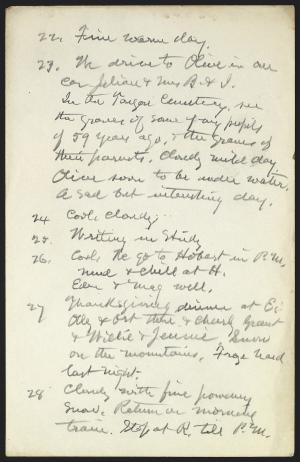 22. Fine warm day.
23. We drive to Olive in our
car Julian & Mrs B. & I.
In the Tongore Cemetery, see
the graves of some of my pupils
of 59 years ago, & the graves of
their parents. Cloudy mild day
Olive soon to be under water.
A sad but interesting day.
24 Cool, cloudy.
25. Writing in Study
26. Cool. We go to Hobart in P.M.
wind & chill at H.
Eden & Mag well.
27 Thanksgiving dinner at
& there & Charly Grant
& Willie & Jennie. Snow
on the mountains. Froze hard
last night.
28 Cloudy with fine powdery
snow. Return on morning
train. Stop at R. till P.M.